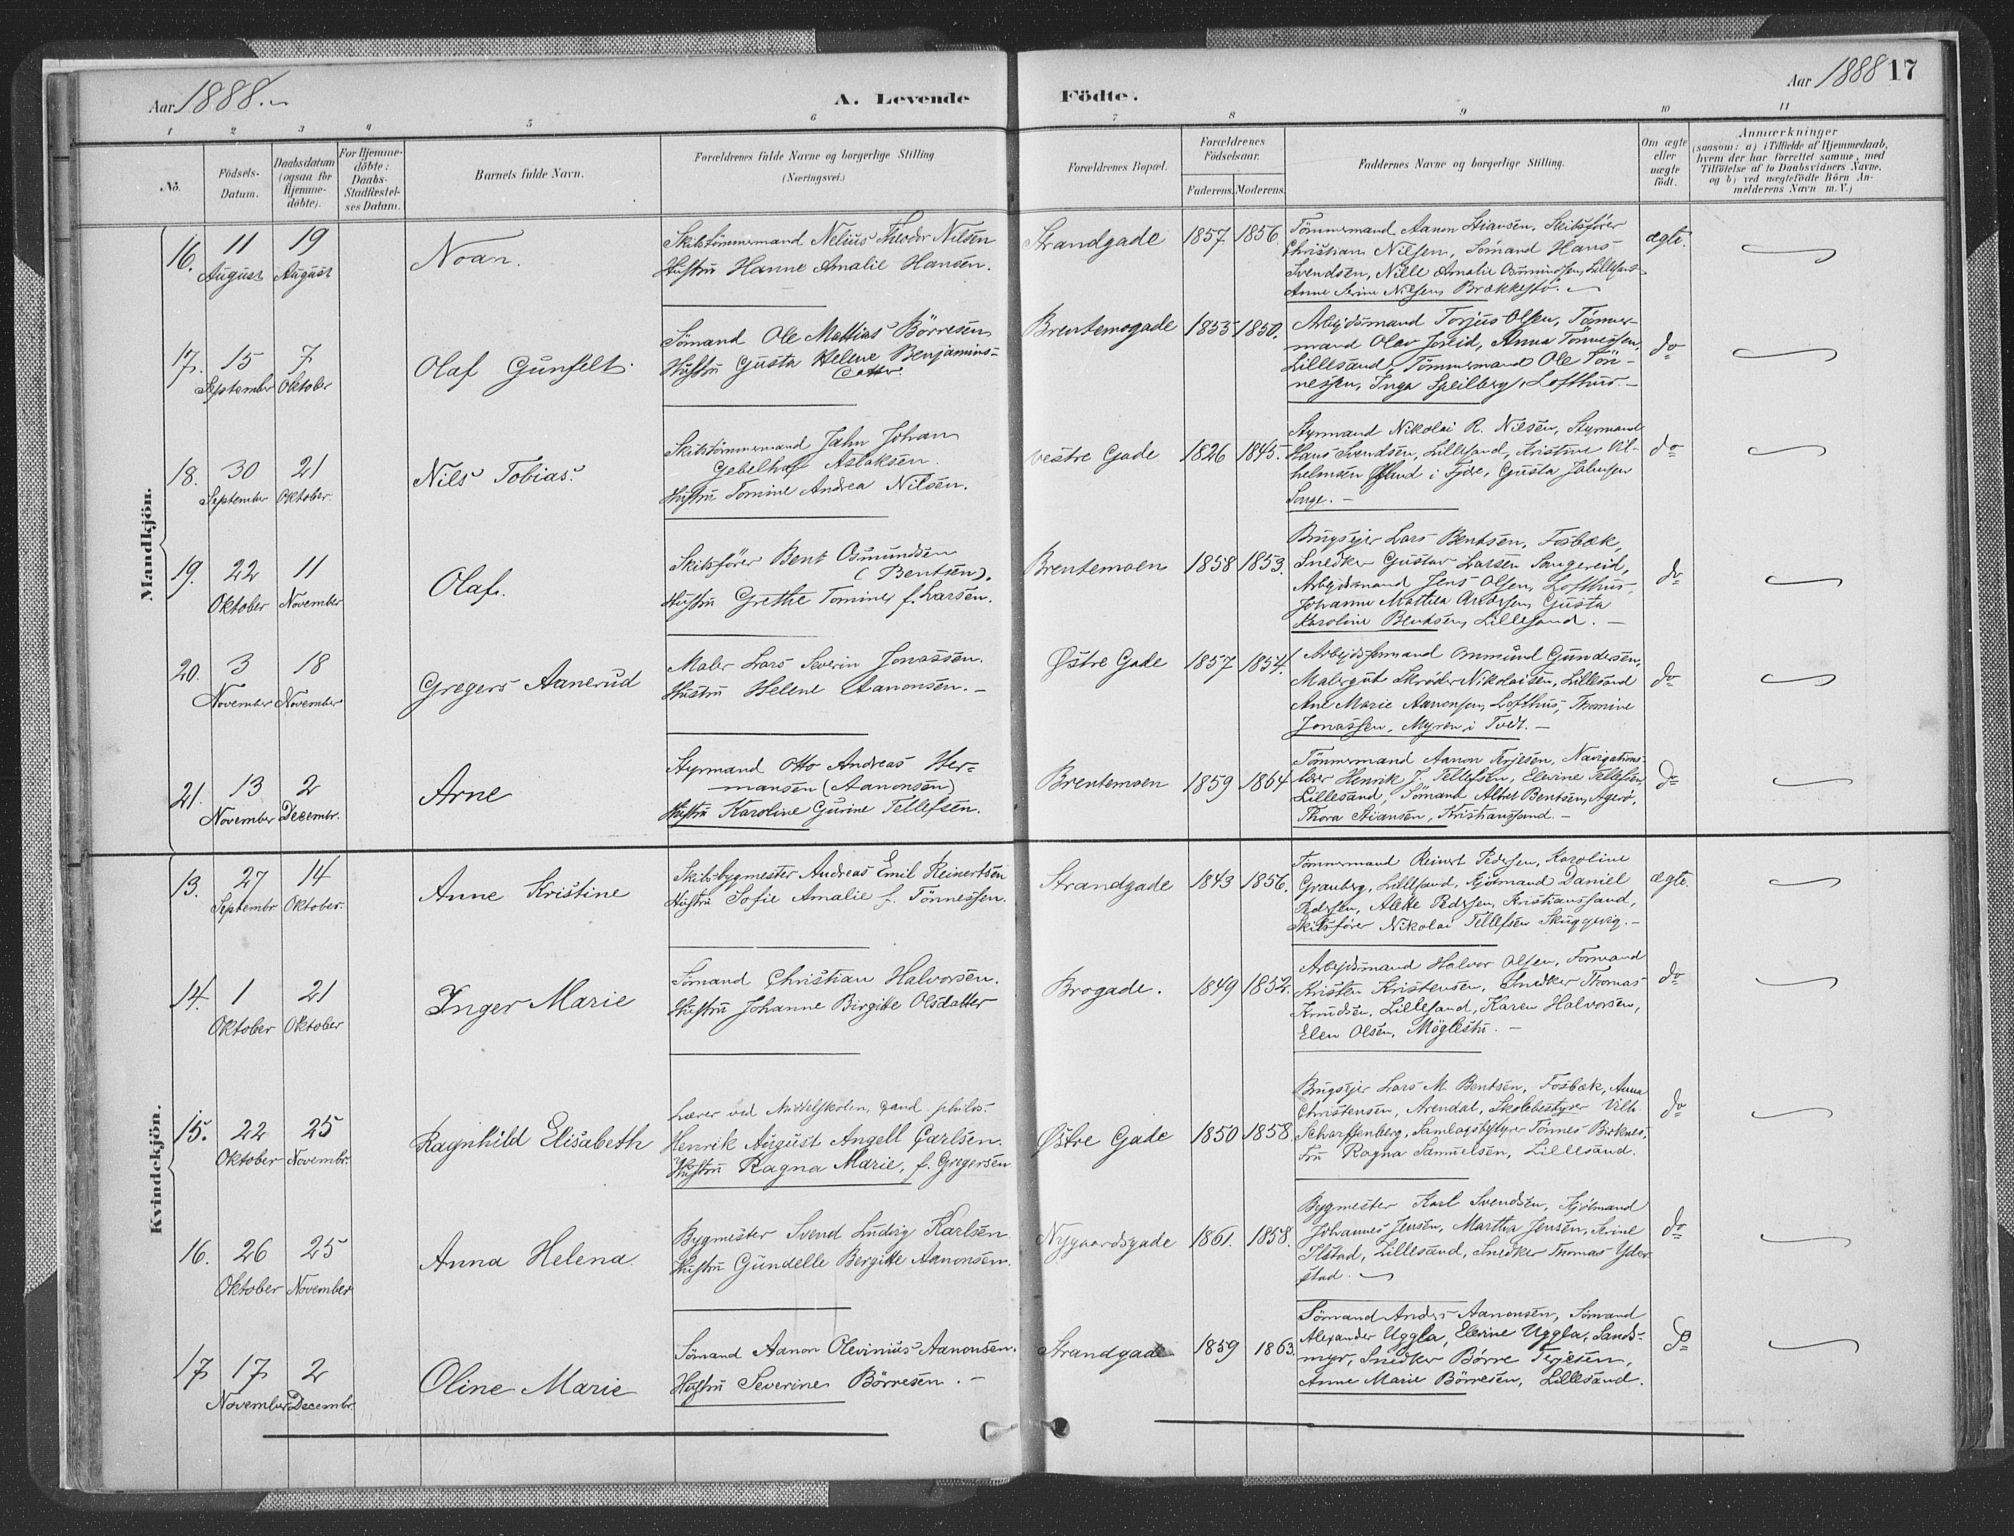 Aar 1888.
A. Levende
Födte.
Aar 1888 17
1 2 3 4 5 6 7 8 9 10 11
No.
Födsels-
Datum.
Daabsdatum
(ogsaa for
Hjemme-
döbte).
For Hjemme-
döbte:
Daabs-
Stadfæstel-
ses Datum.
Barnets fulde Navn.
Forældrenes fulde Navne og borgerlige Stilling
(Næringsvei.)
Forældrenes Bopæl.
Forældrenes
Födselsaar.
Faderens. Moderens.
Faddernes Navne og borgerlige Stilling.
Om ægte
eller
uægte
födt.
Anmærkninger
(saasom: a) i Tilfælde af Hjemmedaab,
hvem der har forrettet samme, med
Tilföielse af to Daabsvidners Navne,
og b) ved uægtefödte Börn An-
melderens Navn m. V.)
Mandkjön.
16. 11 August 19 August
Noan.
Skibstömmermand Nelius Theodor Nilsen
Hustru Hanne Amalie Hansen.
Strandgade 1857 1856
Tömmermand Aanon Stiansen, Skibsförer
Christian Nilsen, Sömand Hans
Svendsen, Nille Amalie Osmundsen, Lillesand
Anne Serine Nilsen, Brækkestö.
ægte.
17. 15 September 7 Oktober
Olaf Gunfelt.
Sömand Ole Mathias Börresen
Hustru Gusta Helene Benjamins-
datter.
Brentemogade 1855 1850.
Arbejdsmand Torjus Olsen, Tömmer-
mand Olav Jereid, Anna Tönnessen,
Lillesand, Tömmermand Ole Tön-
nessen, Inga Speilberg, Lofthus
do
18. 30 September 21 Oktober.
Nils Tobias.
Skibstömmermand Jahn Johan
Gebelhaf Aslaksen.
Hustru Tomine Andrea Nilsen.
vestre Gade 1826 1845.
Styrmand Nikolai R. Nilsen, Styrmand
Hans Svendsen, Lillesand, Kristine Vil-
helmsen i Fjære, Gusta Jahnsen
Songe.
do
19. 22 Oktober 11 November
Olaf.
Skibsförer Bent Osmundsen
(Bentsen).
Hustru Grethe Tomine f. Larsen.
Brentemoen 1858 1853.
Brugsejer Lars Bentsen, Fosbæk,
Snedker Gustav Larsen Sangereid,
Arbejdsmand Jens Olsen, Lofthus,
Johanne Mathea Andersen, Gusta
Karoline Bentsen, Lillesand.
do
20. 3 November 18 November
Gregers Aanerud
Maler Lars Severin Jonassen.
Hustru Helene Aanonsen.
Østre Gade 1857 1854.
Arbejdsformand Onmund Gundersen,
Malergut Schrøder Nikolaisen, Lillesand
Ane Marie Aanonsen, Lofthus, Thomine
Jonassen, Myren i Tvedt.
do
21. 13 November 2 Decembr.
Arne
Styrmand Otto Andreas Her-
mansen (Aanonsen)
Hustru Karoline Gurine Tellefsen.
Brentemoen 1859 1864
Tömmermand Aanon Terjesen, Navigations-
lærer Henrik J. Tellefsen, Elevine Tellefsen
Lillesand, Sömand Albret Bentsen, Agerö,
Thora Stiansen, Kristianssand.
do
Kvindekjön.
13. 27 Septembr. 14 Oktober.
Anne Kristine
Skibsbygmester Andreas Emil Reinertsen
Hustru Sofie Amalie f. Tönnessen.
Strandgade 1843 1856.
Tömmermand Reinert Pedersen, Karoline
Granberg, Lillesand, Kjöbmand Daniel
Pedersen, Alette Pedersen, Kristianssand,
Skibsförer Nikolai Tellefsen Skuggevig.
ægte.
14. 1 Oktober 21 Oktober
Inger Marie
Sömand Christian Halvorsen.
Hustru Johanne Birgitte Olsdatter
Brogade. 1849 1852.
Arbejdsmand Halvor Olsen, Formand
Kristen Kristensen, Snedker Thomas
Knudsen, Lillesand, Karen Halvorsen,
Elen Olsen, Möglestu.
do
15. 22 Oktober 25 Novembr.
Ragnhild Elisabeth
Lærer ved Middelskolen, cand. philos.
Henrik August Angell Carlsen.
Hustru Ragna Marie, f. Gregersen
Østre Gade 1850 1858.
Brugsejer Lars M. Bentsen, Fosbæk, Anna
Christensen, Arendal, Skolebestyrer Vilh.
Scharffenberg, Samlagsbestyrer Tönnes Birknes,
Fru Ragna Samuelsen, Lillesand.
do
16. 26 Oktober 25 November
Anna Helena.
Bygmester Svend Ludvig Karlsen
Hustru Gundelle Bergitte Aanonsen.
Nygaardsgade 1861. 1858.
Bygmester Karl Svendsen, Kjöbmand
Johannes Jensen, Martha Jensen, Serine
Ilstad, Lillesand, Snedker Thomas Yder-
stad.
do
17 17 November 2 Decembr.
Oline Marie
Sömand Aanon Olevinius Aanonsen.
Hustru Severine Börresen.
Strandgade 1859 1863.
Sömand Anders Aanonsen, Sömand
Alexander Uggla, Elevine Uggla, Sands-
myr, Snedker Börre Terjesen,
Anne Marie Börresen, Lillesand.
do